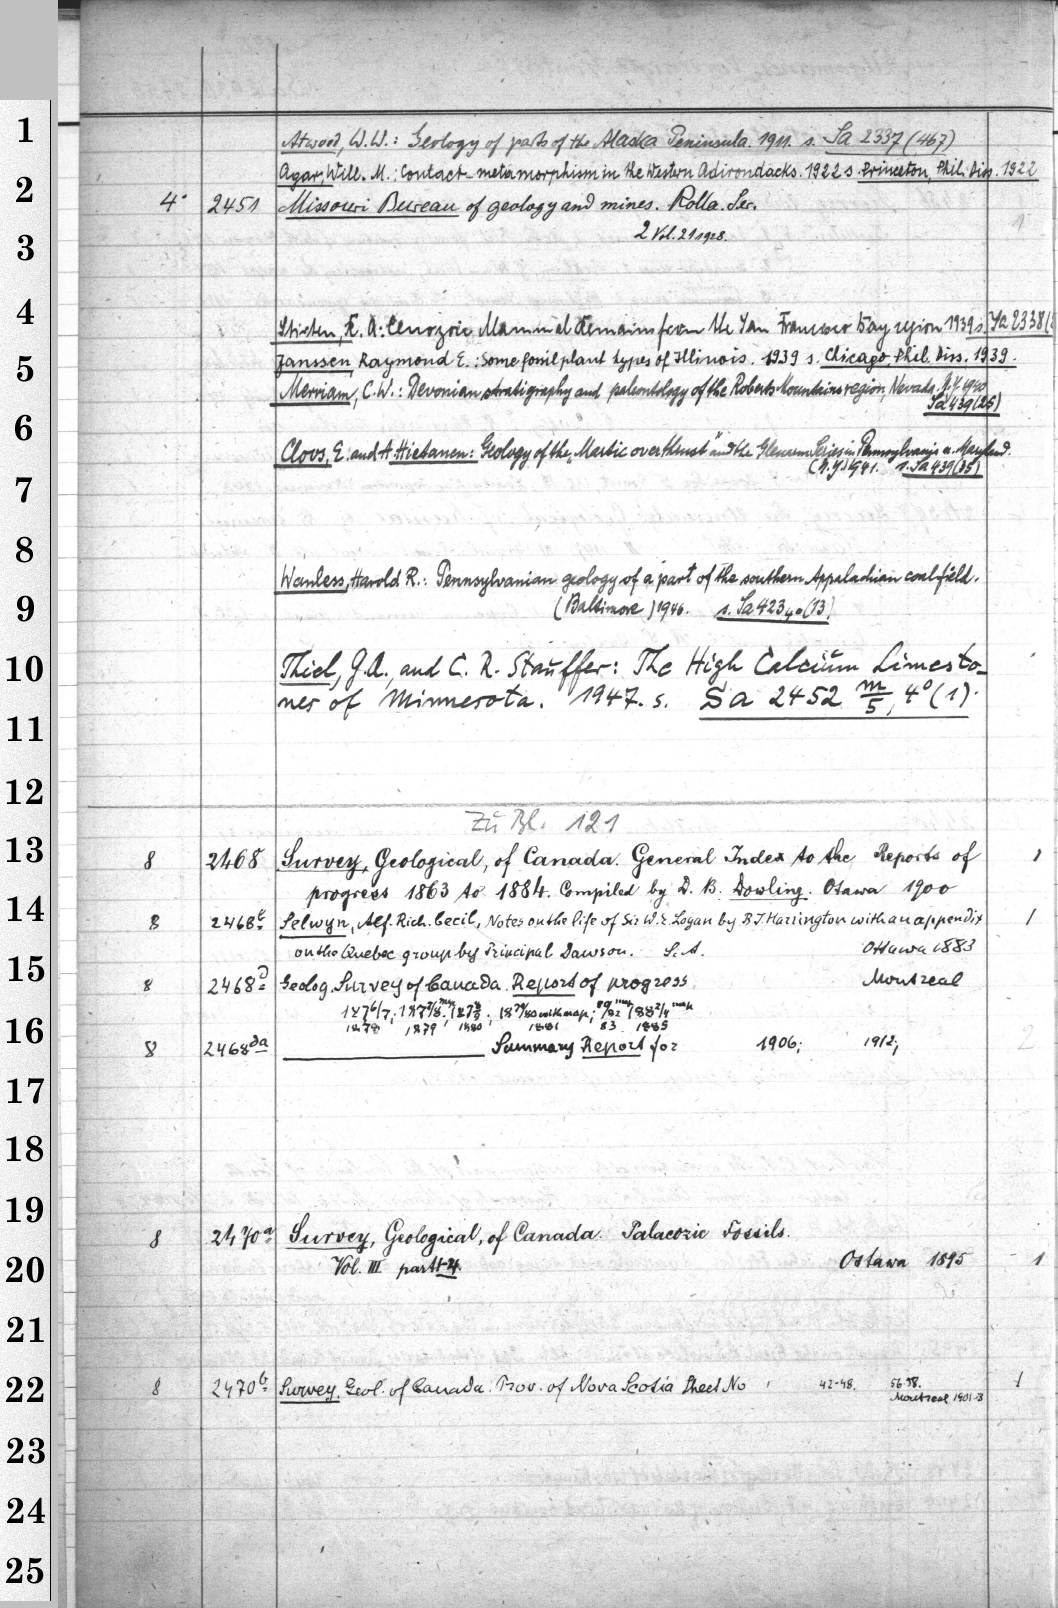 1 Atwood, W.W.: Geology of parts of the Alaska Peninsula. 1911. s. Sa 2337 (467)
Agar, Will. M.: Contact-metamorphism in the Western Adirondacks. 1922 s. Princeton, Phil. Diss. 1922
2 4° 2451 Missouri Bureau of geology and mines. Rolla. Ser.
3 2 Vol. 21 1928. 1
4 Stirton, R. A.: Cenozoic Mammal Remains from the San Francisco Bay region 1939 s. Sa 2338 (
5 Janssen, Raymond E.: Some fossil plant types of Illinois. 1939 s. Chicago, Phil. Diss. 1939.
Merriam, C.W.: Devonian stratigraphy and paleontology of the Roberts Mountains region, Nevada. N.Y. 1940
Sa 439 (25)
6 Cloos, E. and A. Hietanen: Geology of the "Martic overthrust" and the Glenarm Series in Pennsylvania u. Maryland.
7 (N.Y.) 1941. s. Sa 439 (35)
8 Wanless, Harold R.: Pennsylvanian geology of a part of the southern Appalachian coal field.
9 (Baltimore) 1946. s. Sa 423 4° (13)
10 Thiel, G.A. and C. R. Stauffer: The High Calcium Limesto-
nes of Minnesota. 1947. s. Sa 2452 m/5, 4° (1).
11
12
Zu Bl. 121
13 8 2468 Survey, Geological, of Canada. General Index to the Reports of 1
progress 1863 to 1884. Compiled by D. B. Dowling. Otawa 1900
14 8 2468 b Selwyn, Alf. Rich. Cecil, Notes on the life of Sir W.E. Logan by B.J. Harrington with an appendix 1
on the Quebec group by Principal Dawson. S.A. Ottawa 1883
15 8 2468 d Geolog. Survey of Canada. Report of progress Montreal
1876/7; 1877/8; 1878/9; 1879/80 with map; 80/82 maps 1882/4 mit
16 1878 1879 1880 1881 83 1885
8 2468 da Summary Report for 1906; 1912; 2
17
18
19 8 2470 a Survey, Geological, of Canada. Palaeozic Fossils.
20 Vol. III part 1-4. Ottawa 1895 1
21
22 8 2470 b Survey, Geol. of Canada. Prov. of Nova Scotia Sheet No 42-48. 56-58. 1
Montreal 1901-3
23
24
25